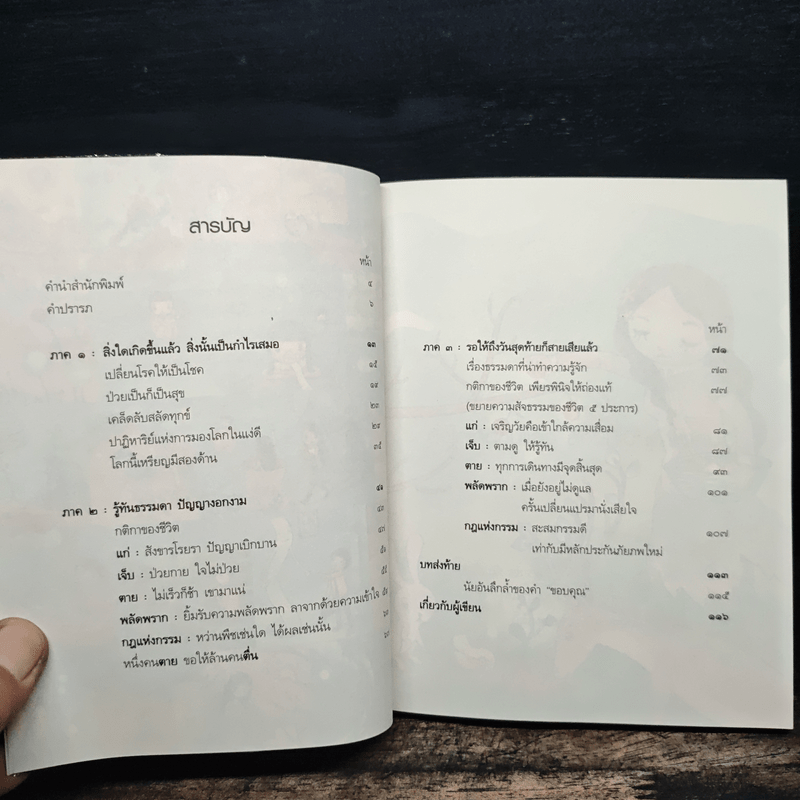 สารบัญ
หน้า
คำนำสำนักพิมพ์ ๔
คำปรารภ ๖
ภาค ๑ : สิ่งใดเกิดขึ้นแล้ว สิ่งนั้นเป็นกำไรเสมอ ๑๓
เปลี่ยนโรคให้เป็นโชค ๑๕
ป่วยเป็นก็เป็นสุข ๑๙
เคล็ดลับสลัดทุกข์ ๒๓
ปาฏิหาริย์แห่งการมองโลกในแง่ดี ๒๙
โลกนี้เหรียญมีสองด้าน ๓๕
ภาค ๒ : รู้ทันธรรมดา ปัญญางอกงาม
กติกาของชีวิต
แก่ : สังขารโรยรา ปัญญาเบิกบาน
เจ็บ : ป่วยกาย ใจไม่ป่วย
ตาย : ไม่เร็วก็ช้า เขามาแน่
พลัดพราก : ยิ้มรับความพลัดพราก ลาจากด้วยความเข้าใจ
กฎแห่งกรรม : หว่านพืชเช่นใด ได้ผลเช่นนั้น
หนึ่งคนตาย ขอให้ล้านคนตื่น
หน้า
ภาค ๓ : รอให้ถึงวันสุดท้ายก็สายเสียแล้ว ๗๑
เรื่องธรรมดาที่น่าทำความรู้จัก ๗๓
กติกาของชีวิต เพียรพินิจให้ถ่องแท้ ๗๗
(ขยายความสัจธรรมของชีวิต ๕ ประการ)
แก่ : เจริญวัยคือเข้าใกล้ความเสื่อม ๘๑
เจ็บ : ตามดู ให้รู้ทัน ๘๗
ตาย : ทุกการเดินทางมีจุดสิ้นสุด ๙๓
พลัดพราก : เมื่อยังอยู่ไม่ดูแล ๑๐๑
ครั้นเปลี่ยนแปรมานั่งเสียใจ
กฎแห่งกรรม : สะสมกรรมดี ๑๐๗
เท่ากับมีหลักประกันภัยภพใหม่
บทส่งท้าย ๑๑๓
นัยอันลึกล้ำของคำ "ขอบคุณ" ๑๑๕
เกี่ยวกับผู้เขียน ๑๑๖